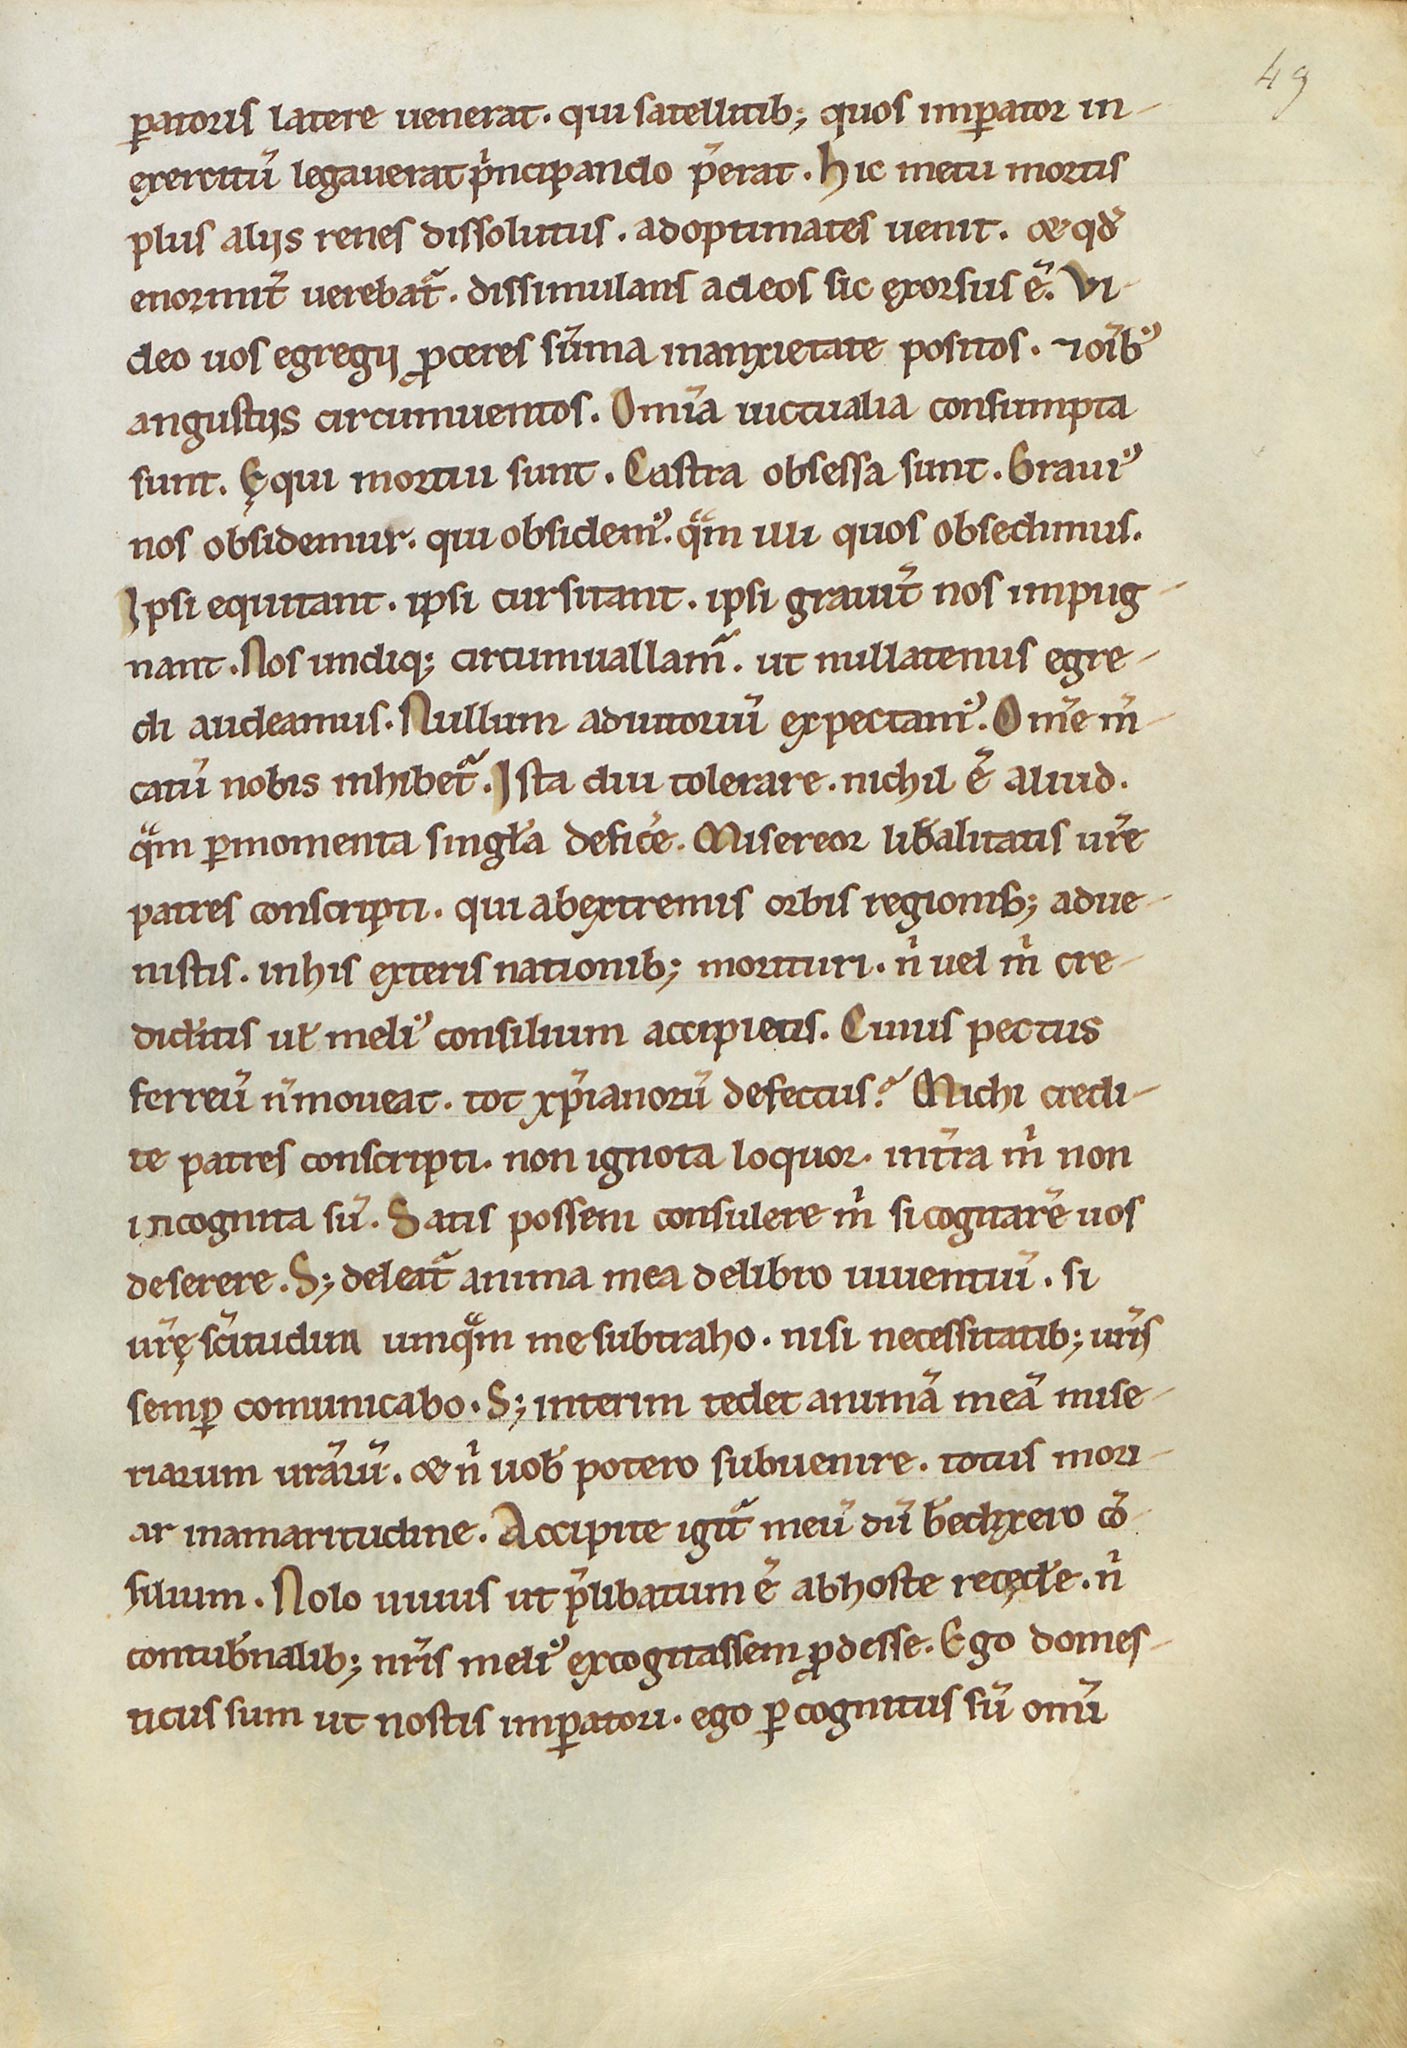 49
ꝑatoris latere uenerat. qui satellitib; quos imꝑator in-
exercitū legauerat p̃ncipando p̃erat. Hic metu mortis
plus aliis renes dissolutus. adoptimates uenit. & qđ
enormit̃ verebat̃. dissimulans adeos sic exorsus ē. Vi-
deo uos egregii ꝓceres sūma inanxietate positos. ⁊ oīb᷒
angustiis circumuentos. Omīa uictualia consumpta
sunt. Ęqui mortui sunt. Castra obsessa sunt. Graui᷒
nos obsidemur. qui obsidem᷒. qᷓm illi quos obsedimus.
Ipsi equitant. ipsi cursitant. ipsi grauit̃ nos impug-
nant. Nos undiq; circumuallam̃. ut nullatenus egre-
di audeamus. Nullum adiutoriū expectam᷒. Om̄e m̃-
catū nobis inhibet̃. Ista diu tolerare. nichil ē aliud.
qᷓm ꝑmomenta singła defic̃e. Misereor lib̃alitatis ur̃e
patres conscripti. qui abextremis orbis regionib; adue-
nistis. inhis exteris nationib; morituri. n̍ uel m̍ cre-
did̃itis uł meli᷒ consilium accipietis. Cuius pectus
ferreū n̄moueat. tot xp̄ianorū defectus? Michi credi-
te patres conscripti. non ignota loquor. int̃ra m̍ non
incognita sū. Satis possem consulere m̍ si cogitarē uos
deserere. S; deleat̃ anima mea delibro uiuentiū. si
ur̃ę sc̃itudini umqᷓm me subtraho. nisi necessitatib; ur̃is
semꝑ comunicabo. S; interim tedet animā meā mise-
riarum ur̃arū. & n̍ uob̃ potero subuenire. totus mori-
ar inamaritudine. Accipite igit̃ meū dū b̃edixero cō-
silium. Nolo uiuus ut p̃libatum ē abhoste recęd̃e. n̍
contub̃nalib; nr̃is meli᷒ excogitassem ꝓdesse. Ego domes-
ticus sum ut nostis imꝑatori. ego ꝑcognitus sū omī